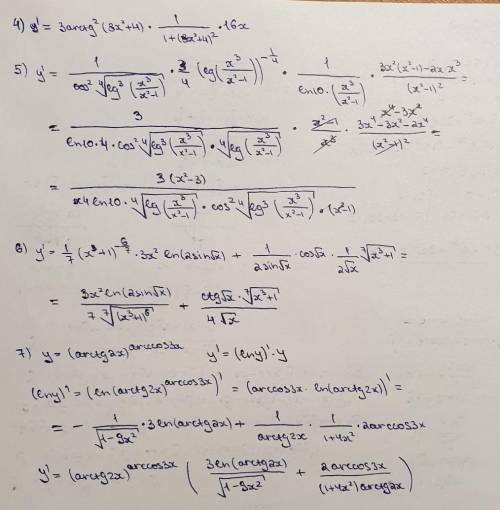 4) y' = 3arctg²(8x²+4) · 1/(1+(8x²+4)²) · 16x
5) y' = 1/(cos² ⁴√(lg³(x³/(x²-1)))) · 3/4 (lg(x³/(x²-1)))^(-1/4) · 1/(ln10·(x³/(x²-1))) · (3x²(x²-1)-2x·x³)/((x²-1)²) =
= 3/(ln10·4·cos² ⁴√(lg³(x³/(x²-1))) · ⁴√(lg(x³/(x²-1)))) · (x²-1)/x³ · (3x⁴-3x²-2x⁴)/((x²-1)²) = x⁴-3x²
= 3(x²-3)/(x4ln10·⁴√(lg(x³/(x²-1))) · cos² ⁴√(lg³(x³/(x²-1))) · (x²-1))
6) y' = 1/7 (x³+1)^(-6/7) · 3x² ln(2sin√x) + 1/(2sin√x) · cos√x · 1/(2√x) ⁷√(x³+1) =
= 3x² ln(2sin√x)/(7 ⁷√((x³+1)⁶)) + ctg√x · ⁷√(x³+1)/(4√x)
7) y = (arctg2x)^(arccos3x) y' = (lny)' · y
(lny)' = (ln(arctg2x)^(arccos3x))' = (arccos3x · ln(arctg2x))' =
= - 1/√(1-9x²) · 3ln(arctg2x) + 1/(arctg2x) · 1/(1+4x²) · 2arccos3x
y' = (arctg2x)^(arccos3x) (3ln(arctg2x)/√(1-9x²) + 2arccos3x/((1+4x²)arctg2x))